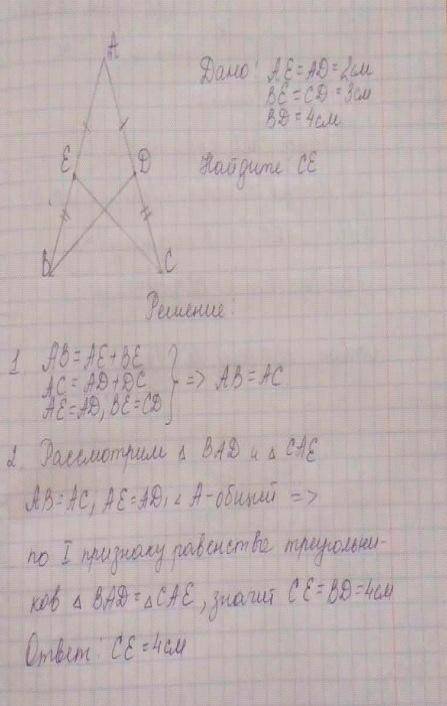 A
Дано: AE=AD=2см
BE=CD=3см
BD=4см
E
D
Найдите CE
B
C
Решение:
1 AB=AE+BE
AC=AD+DC
AE=AD, BE=CD
=> AB=AC
2 Рассмотрим △ BAD и △ CAE
AB=AC, AE=AD, ∠ A-общий =>
по I признаку равенстве треугольни-
ков △ BAD=△CAE, значит CE=BD=4см
Ответ: CE=4см